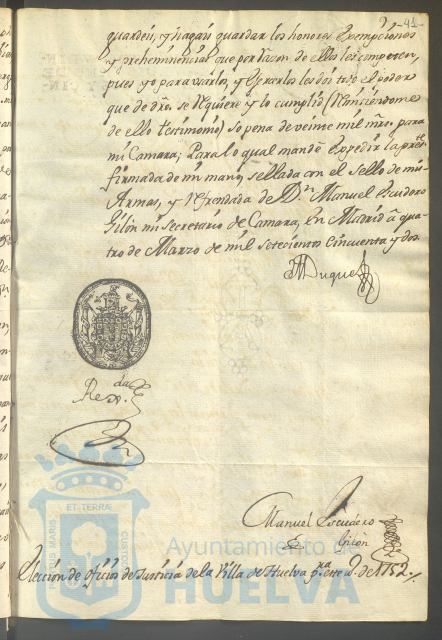 41
guarden, y hagan guardar los honores Exempciones
y prehemminencias que por razon de ellos les competen,
pues yo para usarlos, y Exercerlos les doi todo el poder
que de dro. se requiere y lo cumplid (remitiendome
de ello testimonio) so pena de veinte mil mrs. para
mi Camara; Para lo qual mandé Expedir la press.te
firmada de mi mano, sellada con el sello de mis
Armas, y refrendada de D.n Manuel Escudero
Gilón mi Secretario de Camara, En Madrid â qua
tro de Marzo de mil setecientos cinquenta y dos
Duque
Rex.da
Manuel Escudero
Gilón
Elección de oficios de Justicia de la Villa de Huelva p.ra este a. de 1752
PORTUS MARIS ET TERRAE CUSTODIA
Ayuntamiento de
HUELVA